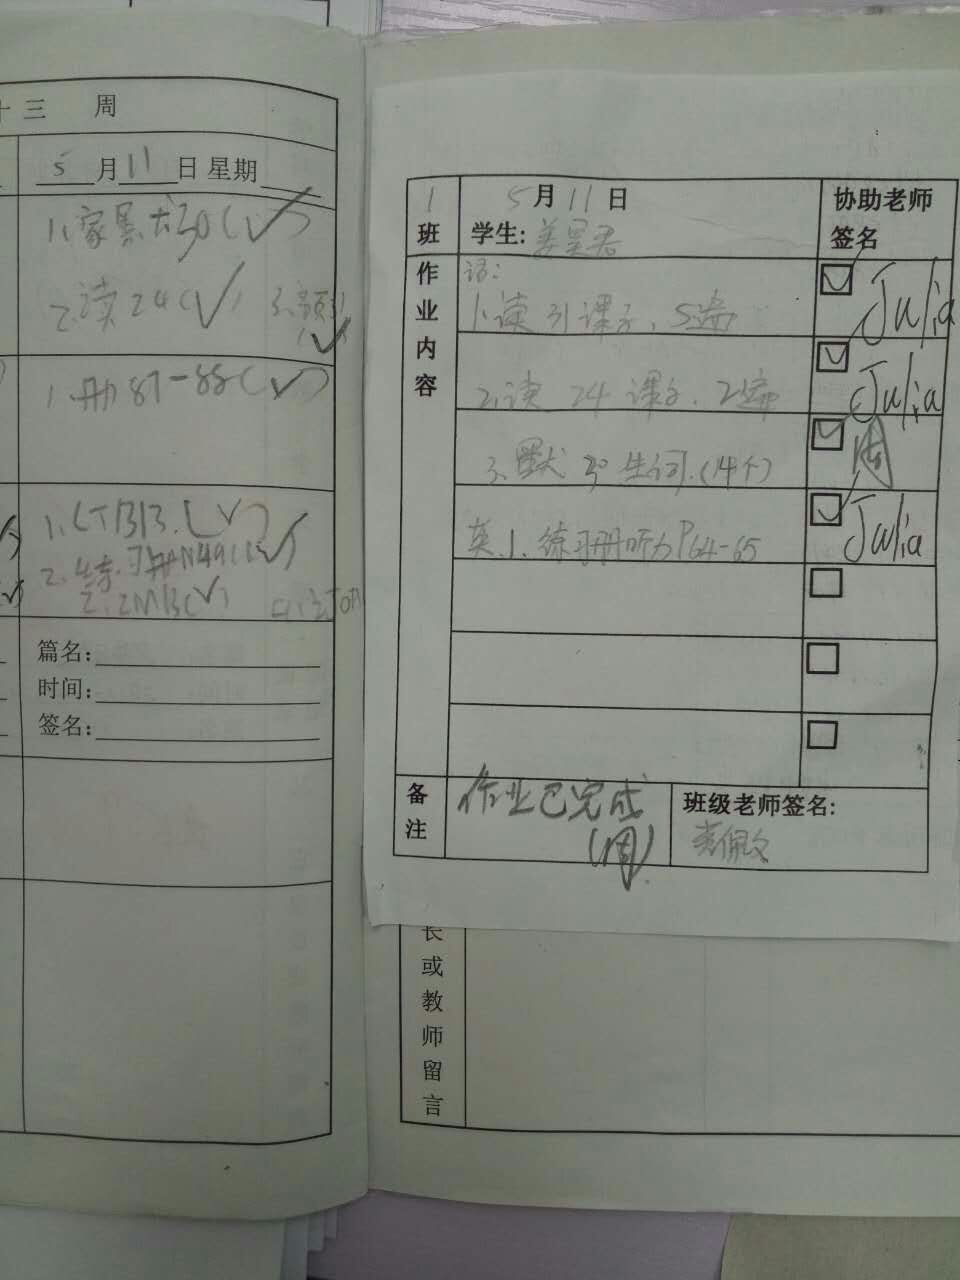 十三 周
5月11日 星期
1.家默大30(✓)
2.读24(✓)
1.册87-88(✓)
篇名:
时间:
签名:
1班
5月11日
学生:
协助老师签名
作业内容
语:
1.读31课文、5遍
Julia
2.读 24 课文、2遍
Julia
3.默 30 生词.(14个)
周
英.1.练习册听力P64-65
Julia
备注
作业已完成
(周)
班级老师签名:
长或教师留言